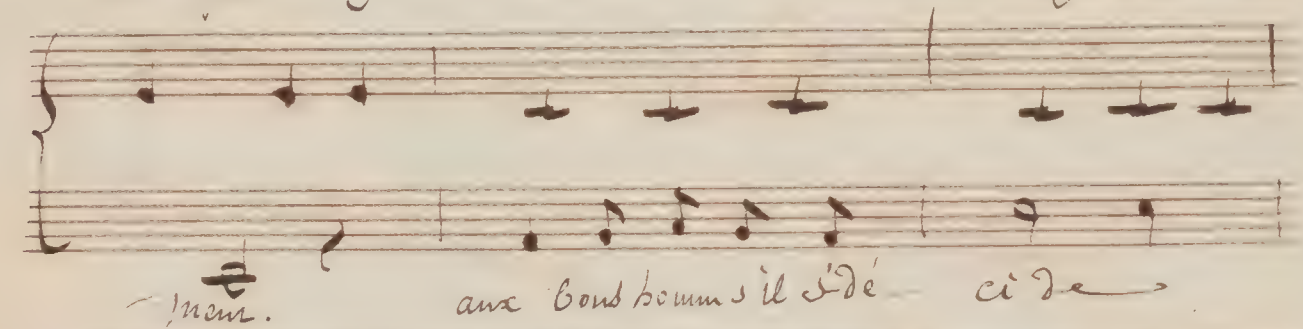 ment. aux bons hommes il s'dé - ci de